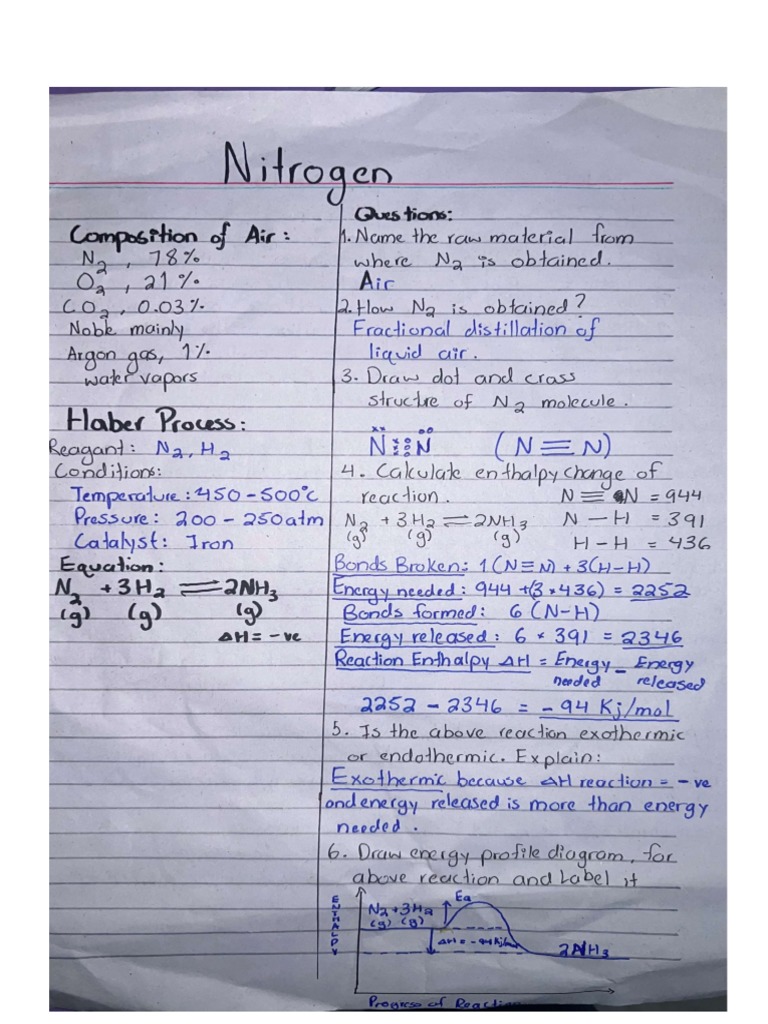 Nitrogen
Composition of Air:
N2, 78%
O2, 21%
CO2, 0.03%
Noble mainly
Argon gas, 1%
water vapors
Haber Process:
Reagant: N2, H2
Conditions:
Temperature: 450-500°c
Pressure: 200-250atm
Catalyst: Iron
Equation:
N2 + 3H2 ⇌ 2NH3
(g) (g) (g)
ΔH = -ve
Questions:
1. Name the raw material from
where N2 is obtained.
Air
2. How N2 is obtained?
Fractional distillation of
liquid air.
3. Draw dot and cross
structure of N2 molecule.
N N (N≡N)
4. Calculate enthalpy change of
reaction. N≡N = 944
N2 + 3H2 ⇌ 2NH3 N-H = 391
(g) (g) (g) H-H = 436
Bonds Broken: 1(N≡N) + 3(H-H)
Energy needed: 944 + (3×436) = 2252
Bonds formed: 6(N-H)
Energy released: 6 × 391 = 2346
Reaction Enthalpy ΔH = Energy needed - Energy released
2252 - 2346 = -94 Kj/mol
5. Is the above reaction exothermic
or endothermic. Explain:
Exothermic because ΔH reaction = -ve
and energy released is more than energy
needed.
6. Draw energy profile diagram, for
above reaction and Label it
ENTHALPY
N2 + 3H2
(g) (g)
Ea
ΔH = -94 Kj/mol
2NH3
Progress of Reaction